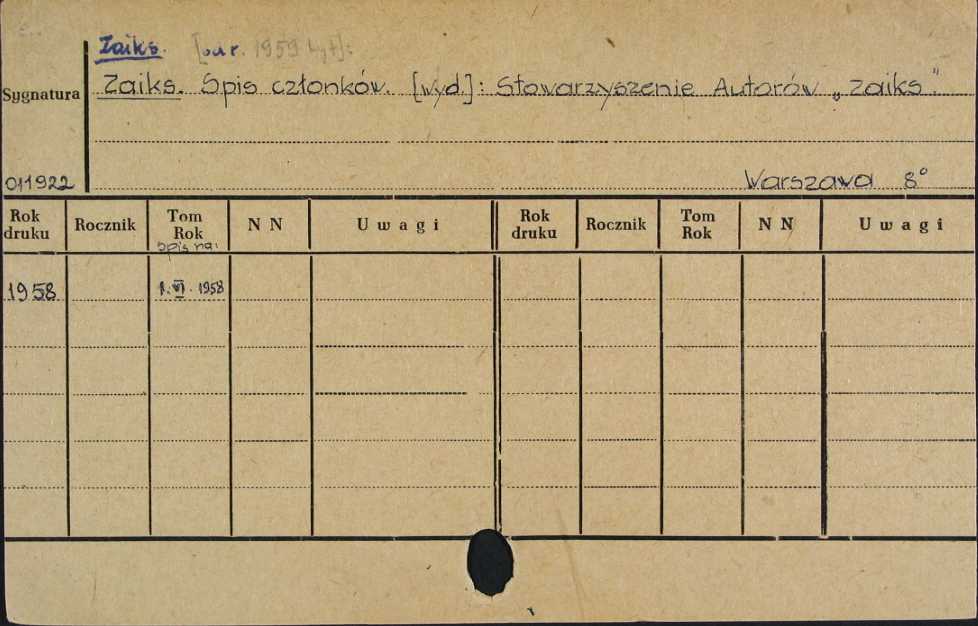 Zaiks. [od r. 1959 tyt]:
Sygnatura
Zaiks. Spis członków. [wyd.]: Stowarzyszenie Autorów „Zaiks".
011922
Warszawa 8°
Rok druku Rocznik Tom Rok N N Uwagi Rok druku Rocznik Tom Rok N N Uwagi
spis na:
1958 1.VI.1958